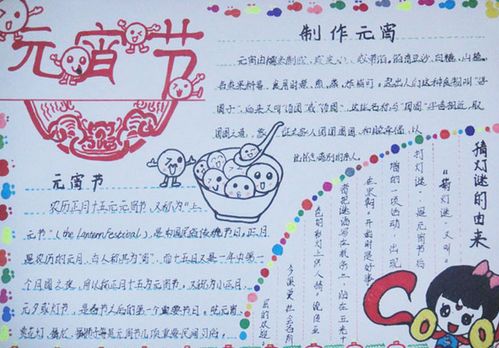 元宵节
制作元宵
元宵由糯米制成，或实心，或带馅。馅有豆沙、白糖、山楂、
各类果料等，食用时煮、煎、蒸、炸皆可。起初，人们把这种食物叫“浮
圆子”，后来又叫“汤团”或“汤圆”，这些名称与“团圆”字音相近，取
团圆之意，象征全家人团团圆圆，和睦幸福，以
元宵节
农历正月十五元宵节，又称为“上
元节”(the lantern festival)，是中国民俗传统节日，正月
是农历的元月，古人称其为“宵”，而十五日又是一年中第一
个月圆之夜，所以称正月十五为元宵节。又称为小正月、
元夕或灯节，是春节之后的第一个重要节日。吃元宵、
赏花灯、猜灯谜等是元宵节几项重要民间习俗。
猜灯谜的由来
“猜灯谜”又叫“
打灯谜”是元宵节后
增的一项活动，出现
在宋朝。开始时是好事
者把谜语写在纸条上，贴在五光十
色的彩灯上供人猜。